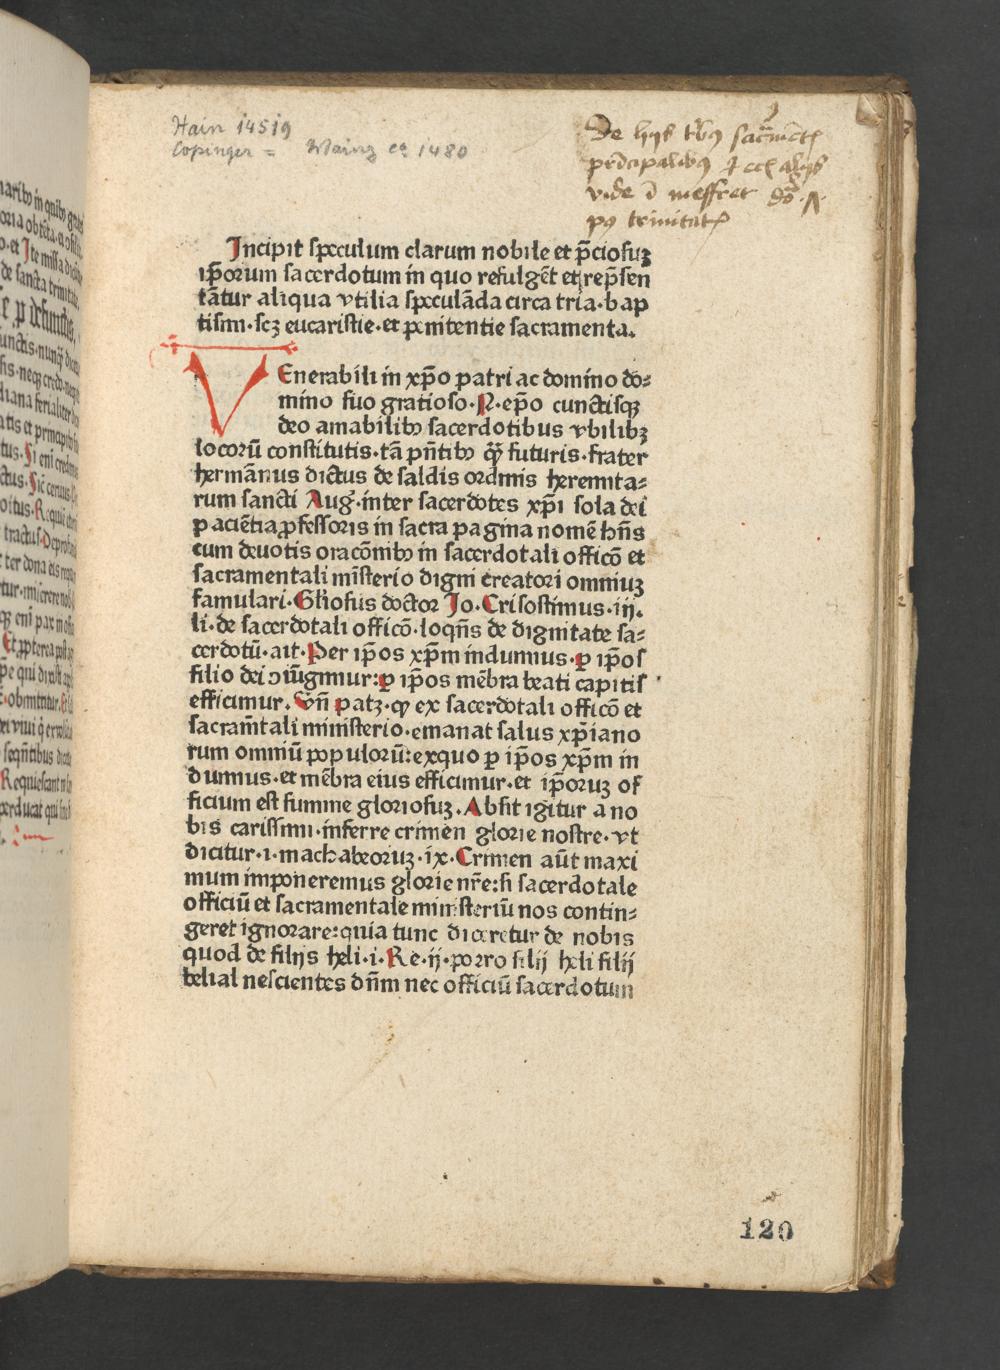 Hain 14519
Copinger = Mainz ca 1480
De hijs tribus sacͫentꝭ
pͥncipalibus
vide ī meffret
pꝰ trinitatꝭ
Incipit speculum clarum nobile et p̄ciosuꝫ
ip̄orum sacerdotum in quo refulgēt et rep̄sen
tātur aliqua vtilia speculāda circa tria·bap
tismi·scꝫ eucaristie·et penitentie sacramenta.
VEnerabili in xp̄o patri ac domino do⸗
mino suo gratioso·P·ep̄o cunctisqꝫ
deo amabilibꝰ sacerdotibus vbilibꝫ
locorū constitutis·tā pn̄tibꝰ qͣꝫ futuris·frater
hermānus dictus de saldis ordinis heremita⸗
rum sancti Aug·inter sacerdotes xp̄i sola dei
pacientia ꝓfessoris in sacra pagina nomē hn̄s
cum deuotis oracōnibꝰ in sacerdotali officō et
sacramentali mīsterio digni creatori omniuꝫ
famulari·Gl̄iosus doctor Jo·Crisostimus·iij.
li·de sacerdotali officō·loqn̄s de dignitate sa⸗
cerdotū·ait·Per ip̄os xp̄m induimus·ꝑ ip̄os
filio dei ↄiūgimur:ꝑ ip̄os mēbra beati capitis
efficimur. Vn̄ patꝫ·ꝙ ex sacerdotali officō et
sacram̄tali ministerio·emanat salus xp̄iano
rum omniū populorū:exquo ꝑ ip̄os xp̄m in
duimus·et mēbra eius efficimur·et ip̄oruꝫ of
ficium est summe gloriosuꝫ. Absit igitur a no
bis carissimi·inferre crimen glorie nostre·vt
dicitur·i·machabeoruꝫ·ix·Crimen aūt maxi
mum imponeremus glorie nr̄e:si sacerdotale
officiū et sacramentale ministeriū nos contin⸗
geret ignorare:quia tunc diceretur de nobis
quod de filijs heli·i·Re·ij·porro filij heli filij
belial nescientes dn̄m nec officiū sacerdotum
120